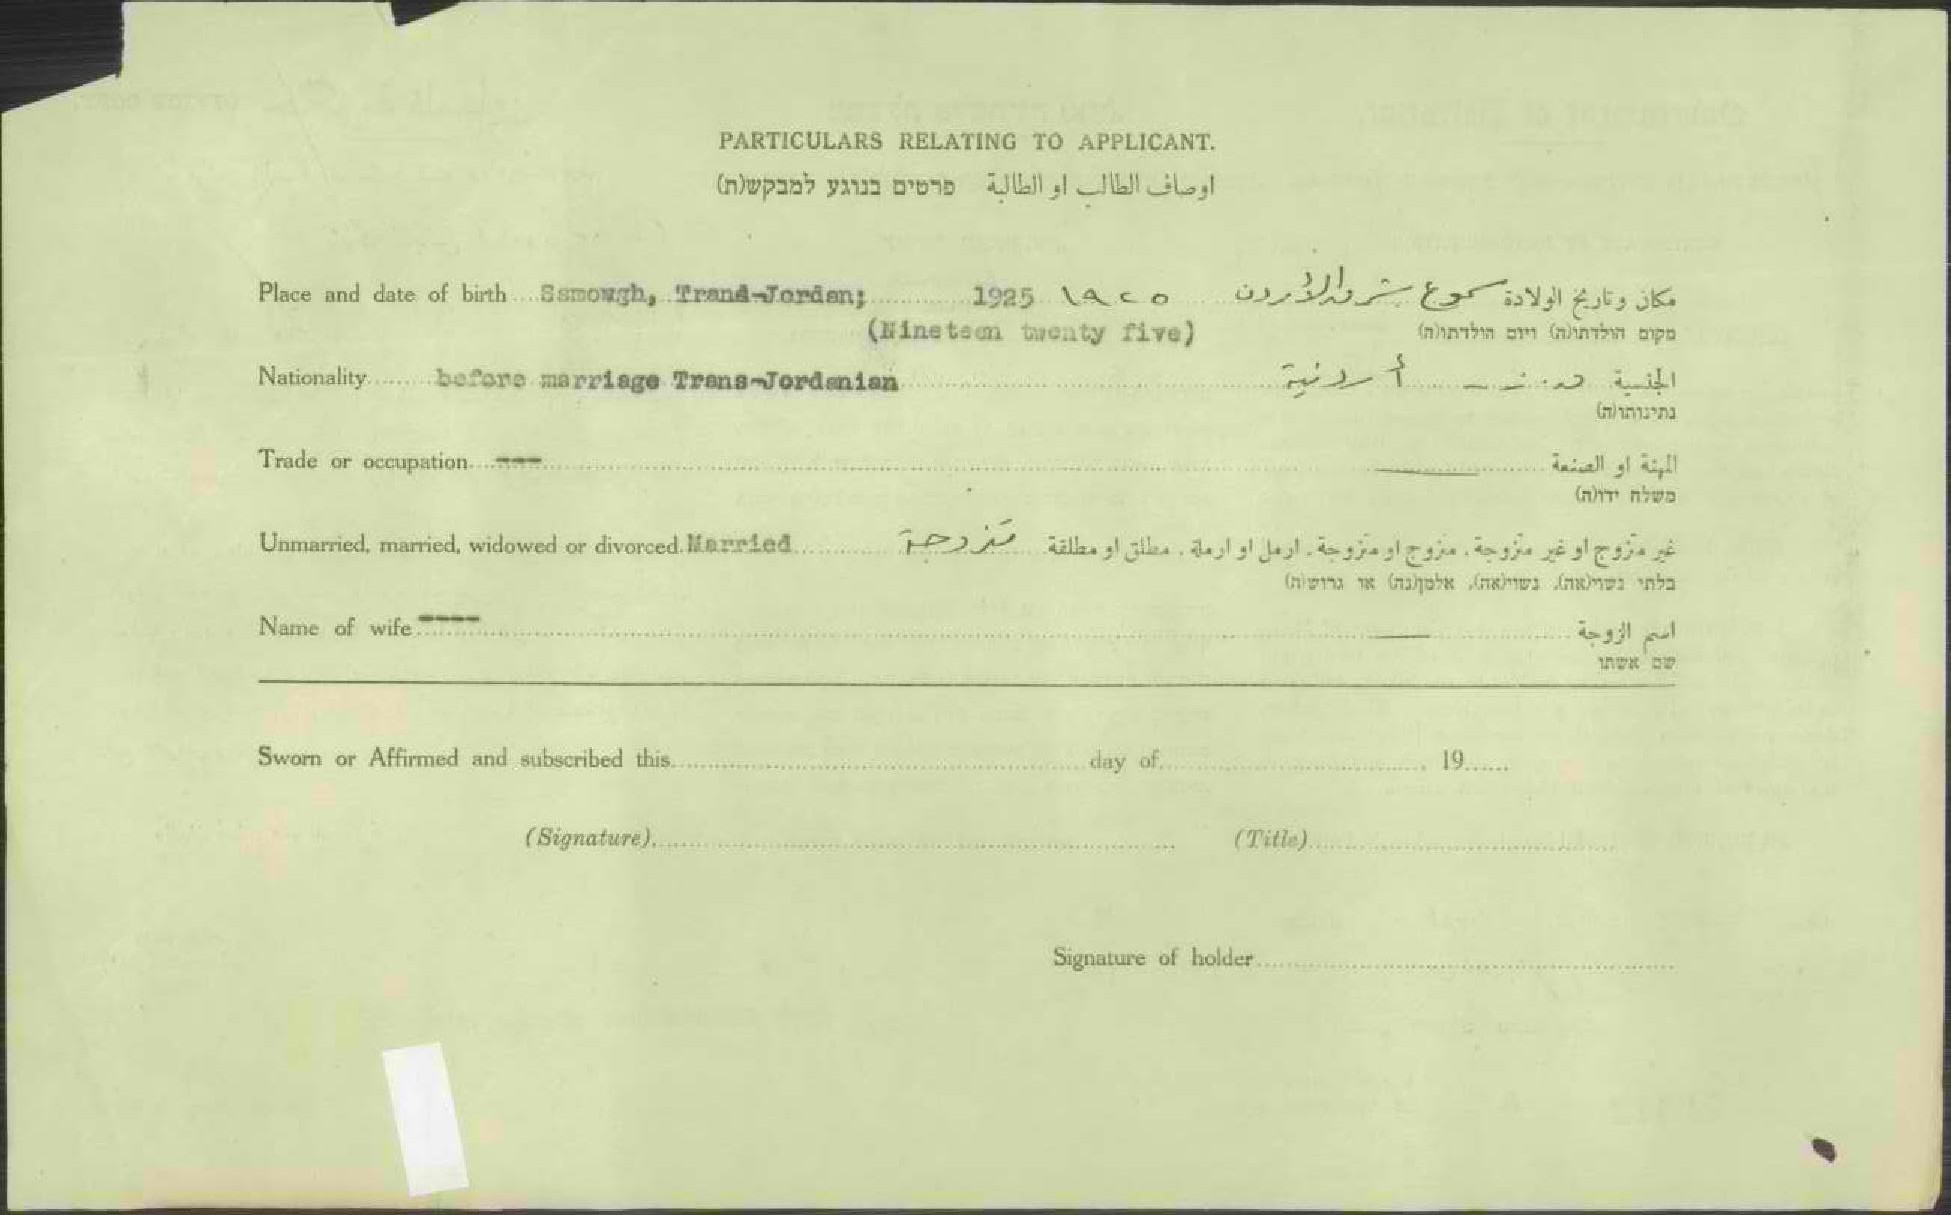 PARTICULARS RELATING TO APPLICANT.
اوصاف الطالب او الطالبة פרטים בנוגע למבקש(ת)
Place and date of birth Ssmowgh, Trand-Jordan; 1925 ١٩٢٥ سموع شرق الأردن مكان وتاريخ الولادة
(Nineteen twenty five) מקום הולדתו(ה) ויום הולדתו(ה)
Nationality before marriage Trans-Jordanian أردنية الجنسية
נתינותו(ה)
Trade or occupation --- المهنة او الصنعة
משלח ידו(ה)
Unmarried, married, widowed or divorced. Married متزوجة غير متزوج او غير متزوجة، متزوج او متزوجة، ارمل او ارملة، مطلق او مطلقة
בלתי נשוי(אה), נשוי(אה), אלמן(נה) או גרוש(ה)
Name of wife ---- اسم الزوجة
שם אשתו
Sworn or Affirmed and subscribed this day of 19
(Signature) (Title)
Signature of holder